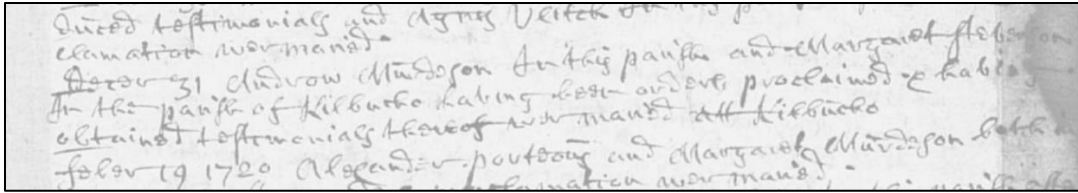 duced testimonials and Agnes Veitch In this p
clamation wer maried
Decer 31 Androw Murdeson In this parish and Margaret Steben
In the parish of Kilbucho having been orderly proclaimed & having
obtained testimonials thereof wer maried att Kilbucho
feber 19 1720 Alexander porteous and Margaret Murdeson both
clamation wer maried